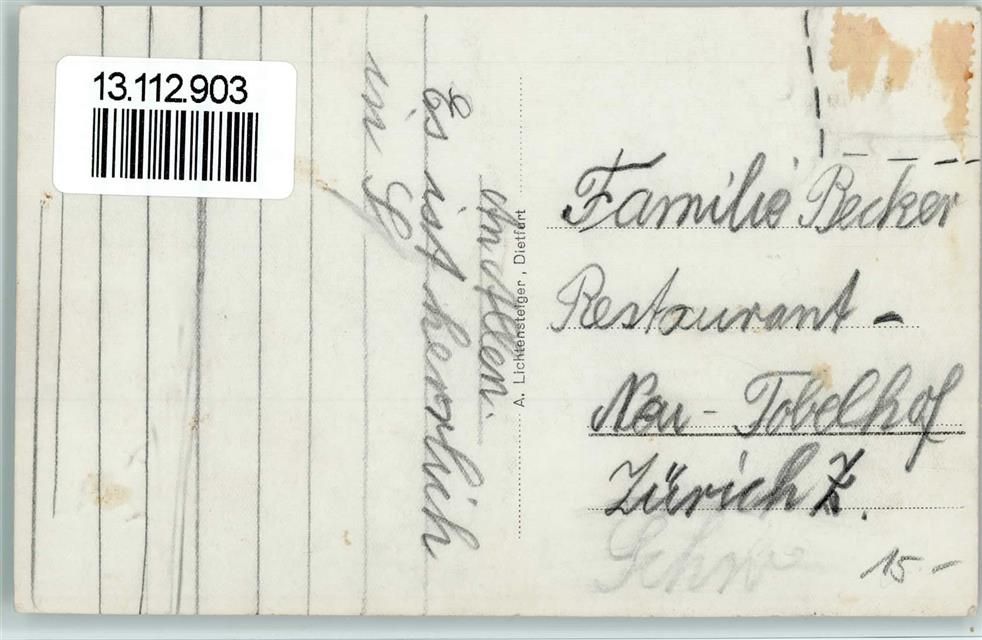 13.112.903
Amden.
Es ist herrlich
A. Lichtensteiger, Dietfurt
Familie Becker
Restaurant -
Neu - Tobelhof
Zürich 7.
15.-